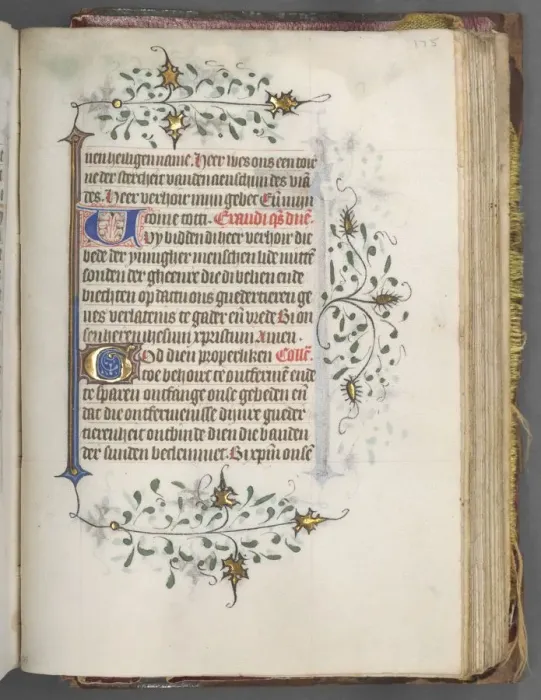 175
nen heiligen name. Heer wes ons een toir
ne der stercheit vanden aenschijn des viā
des. Heer verhoir mijn gebet Eñ mijn
come totti. Exaudi q̄s dn̄e.
Wy bidden di heer verhoir die
bede der ynnigher menschen ende
sonden der gheenre die di belien ende
biechten op datu ons guedertieren ge
ues verlatenis te gader eñ vrede Bi on
sen heren ihesum xpristum Amen.
God dien properliken Coll̄.
toe behoirt te ontfermē ende
te sparen ontfange onse gebeden eñ
dat die ontfermenisse dijnre gueder
tierenheit ontbinde dien die banden
der sunden beclemmet. Bi xpm̄ onsē